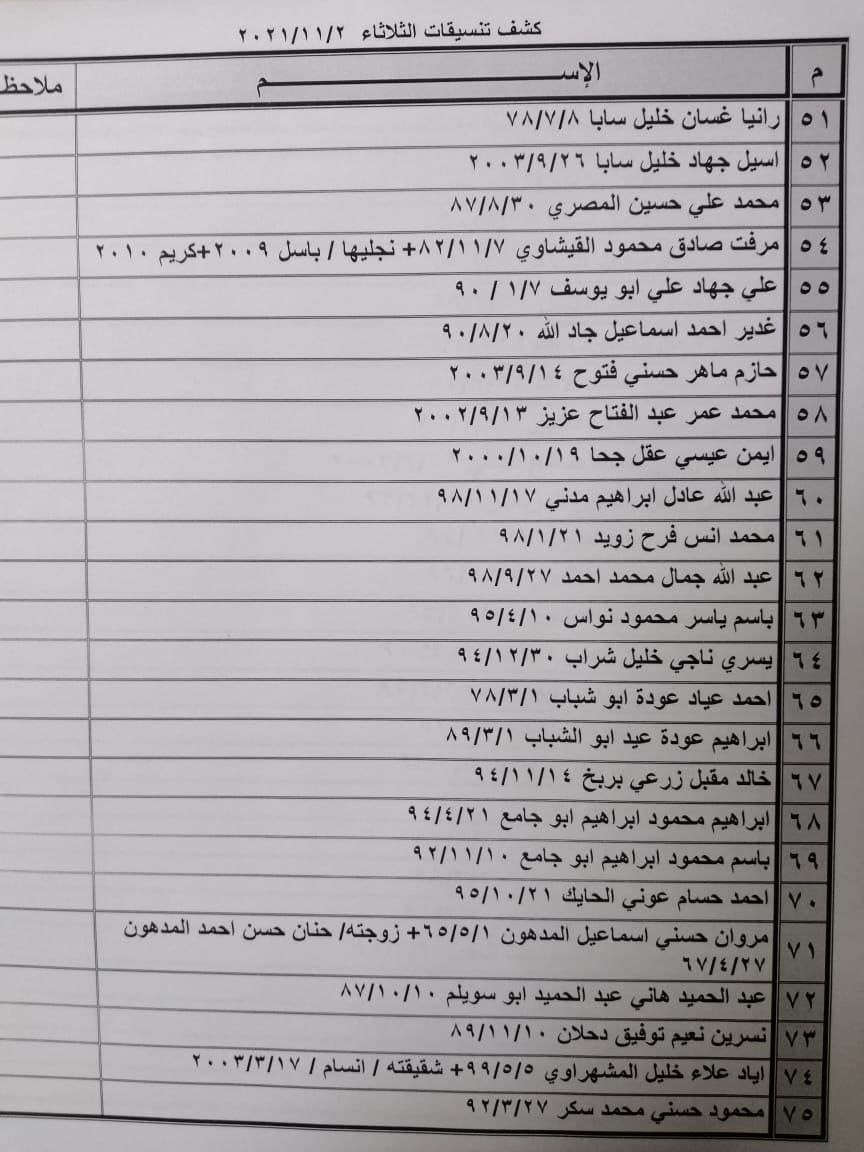 كشف تنسيقات الثلاثاء ٢٠٢١/١١/٢
م الإســـــــــم ملاحظ
٥١ رانيا غسان خليل سابا ٧٨/٧/٨
٥٢ اسيل جهاد خليل سابا ٢٠٠٣/٩/٢٦
٥٣ محمد علي حسين المصري ٨٧/٨/٣٠
٥٤ مرفت صادق محمود القيشاوي ٨٢/١١/٧+ نجليها / باسل ٢٠٠٩+كريم ٢٠١٠
٥٥ علي جهاد علي ابو يوسف ١/٧ / ٩٠
٥٦ غدير احمد اسماعيل جاد الله ٩٠/٨/٢٠
٥٧ حازم ماهر حسني فتوح ٢٠٠٣/٩/١٤
٥٨ محمد عمر عبد الفتاح عزيز ٢٠٠٢/٩/١٣
٥٩ ايمن عيسي عقل جحا ٢٠٠٠/١٠/١٩
٦٠ عبد الله عادل ابراهيم مدني ٩٨/١١/١٧
٦١ محمد انس فرح زويد ٩٨/١/٢١
٦٢ عبد الله جمال محمد احمد ٩٨/٩/٢٧
٦٣ باسم ياسر محمود نواس ٩٥/٤/١٠
٦٤ يسري ناجي خليل شراب ٩٤/١٢/٣٠
٦٥ احمد عياد عودة ابو شباب ٧٨/٣/١
٦٦ ابراهيم عودة عيد ابو الشباب ٨٩/٣/١
٦٧ خالد مقبل زرعي بربخ ٩٤/١١/١٤
٦٨ ابراهيم محمود ابراهيم ابو جامع ٩٤/٤/٢١
٦٩ باسم محمود ابراهيم ابو جامع ٩٢/١١/١٠
٧٠ احمد حسام عوني الحايك ٩٥/١٠/٢١
٧١ مروان حسني اسماعيل المدهون ٦٥/٥/١+ زوجته/ حنان حسن احمد المدهون
٦٧/٤/٢٧
٧٢ عبد الحميد هاني عبد الحميد ابو سويلم ٨٧/١٠/١٠
٧٣ نسرين نعيم توفيق دحلان ٨٩/١١/١٠
٧٤ اياد علاء خليل المشهراوي ٩٩/٥/٥+ شقيقته / انسام / ٢٠٠٣/٣/١٧
٧٥ محمود حسني محمد سكر ٩٢/٣/٢٧